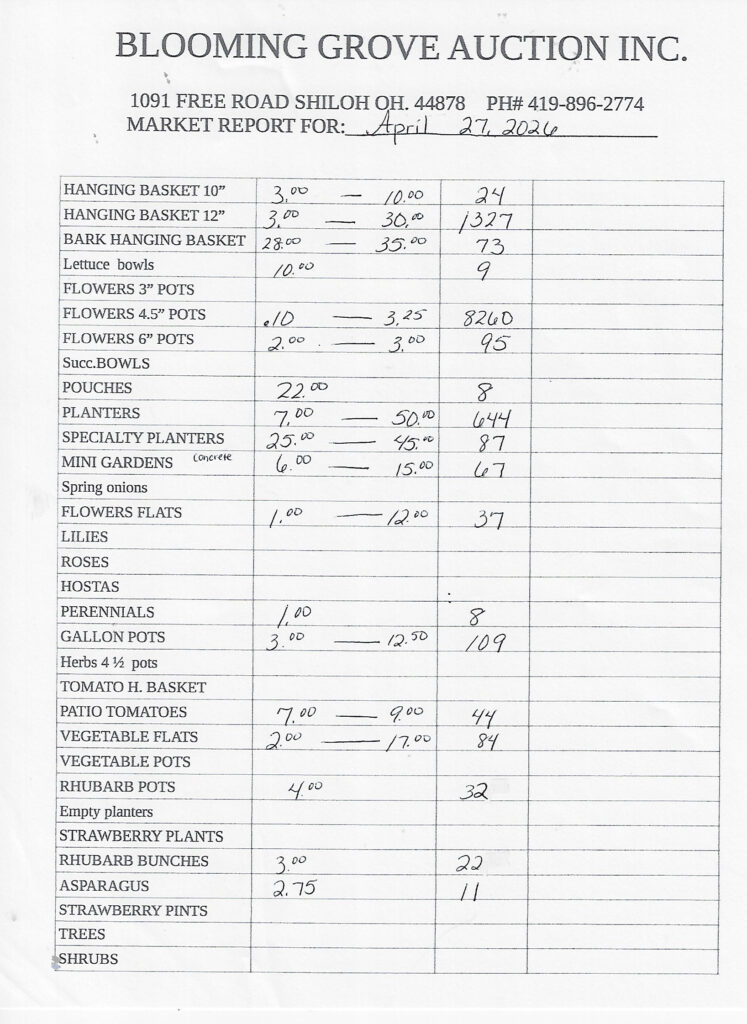 BLOOMING GROVE AUCTION INC.
1091 FREE ROAD SHILOH OH. 44878 PH# 419-896-2774
MARKET REPORT FOR: April 27, 2026
HANGING BASKET 10” 3.00 — 10.00 24
HANGING BASKET 12” 3.00 — 30.00 1327
BARK HANGING BASKET 28.00 — 35.00 73
Lettuce bowls 10.00 9
FLOWERS 3” POTS
FLOWERS 4.5” POTS .10 — 3.25 8260
FLOWERS 6” POTS 2.00 — 3.00 95
Succ.BOWLS
POUCHES 22.00 8
PLANTERS 7.00 — 50.00 644
SPECIALTY PLANTERS 25.00 — 45.00 87
MINI GARDENS concrete 6.00 — 15.00 67
Spring onions
FLOWERS FLATS 1.00 — 12.00 37
LILIES
ROSES
HOSTAS
PERENNIALS 1.00 8
GALLON POTS 3.00 — 12.50 109
Herbs 4 ½ pots
TOMATO H. BASKET
PATIO TOMATOES 7.00 — 9.00 44
VEGETABLE FLATS 2.00 — 17.00 84
VEGETABLE POTS
RHUBARB POTS 4.00 32
Empty planters
STRAWBERRY PLANTS
RHUBARB BUNCHES 3.00 22
ASPARAGUS 2.75 11
STRAWBERRY PINTS
TREES
SHRUBS